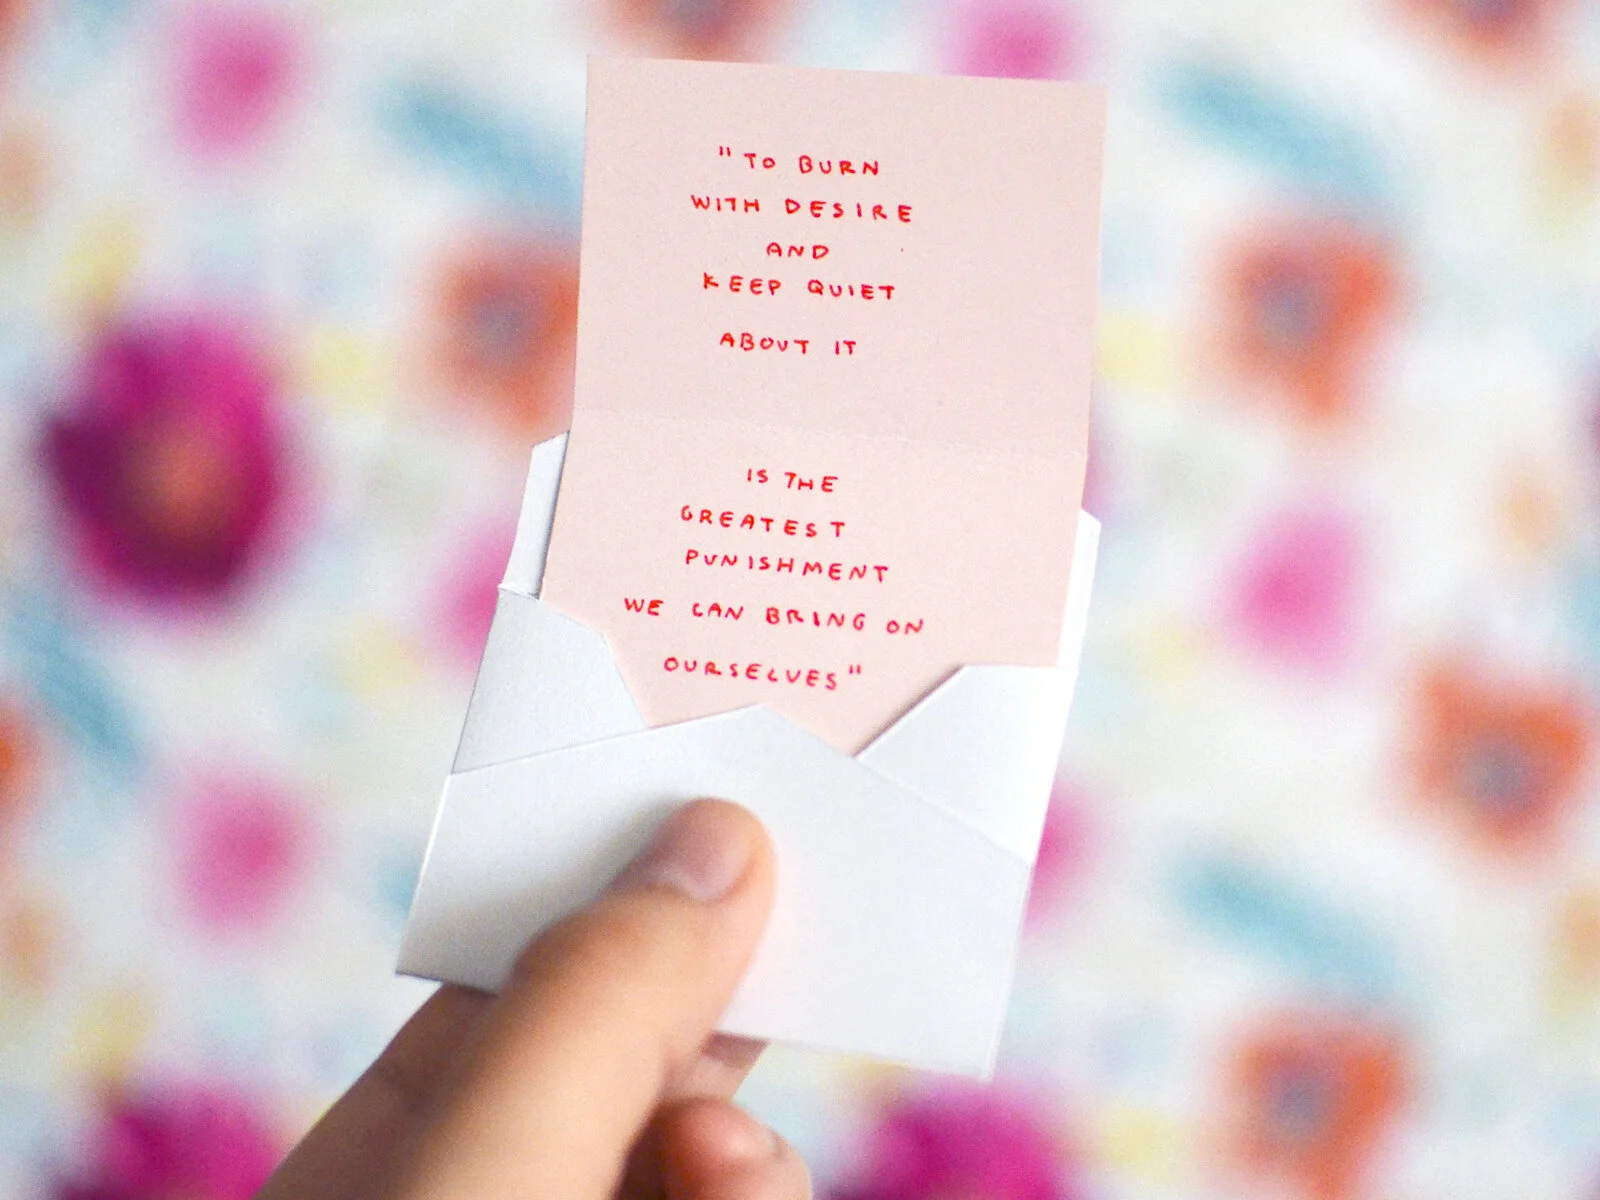 "TO BURN
WITH DESIRE
AND
KEEP QUIET
ABOUT IT
IS THE
GREATEST
PUNISHMENT
WE CAN BRING ON
OURSELVES"